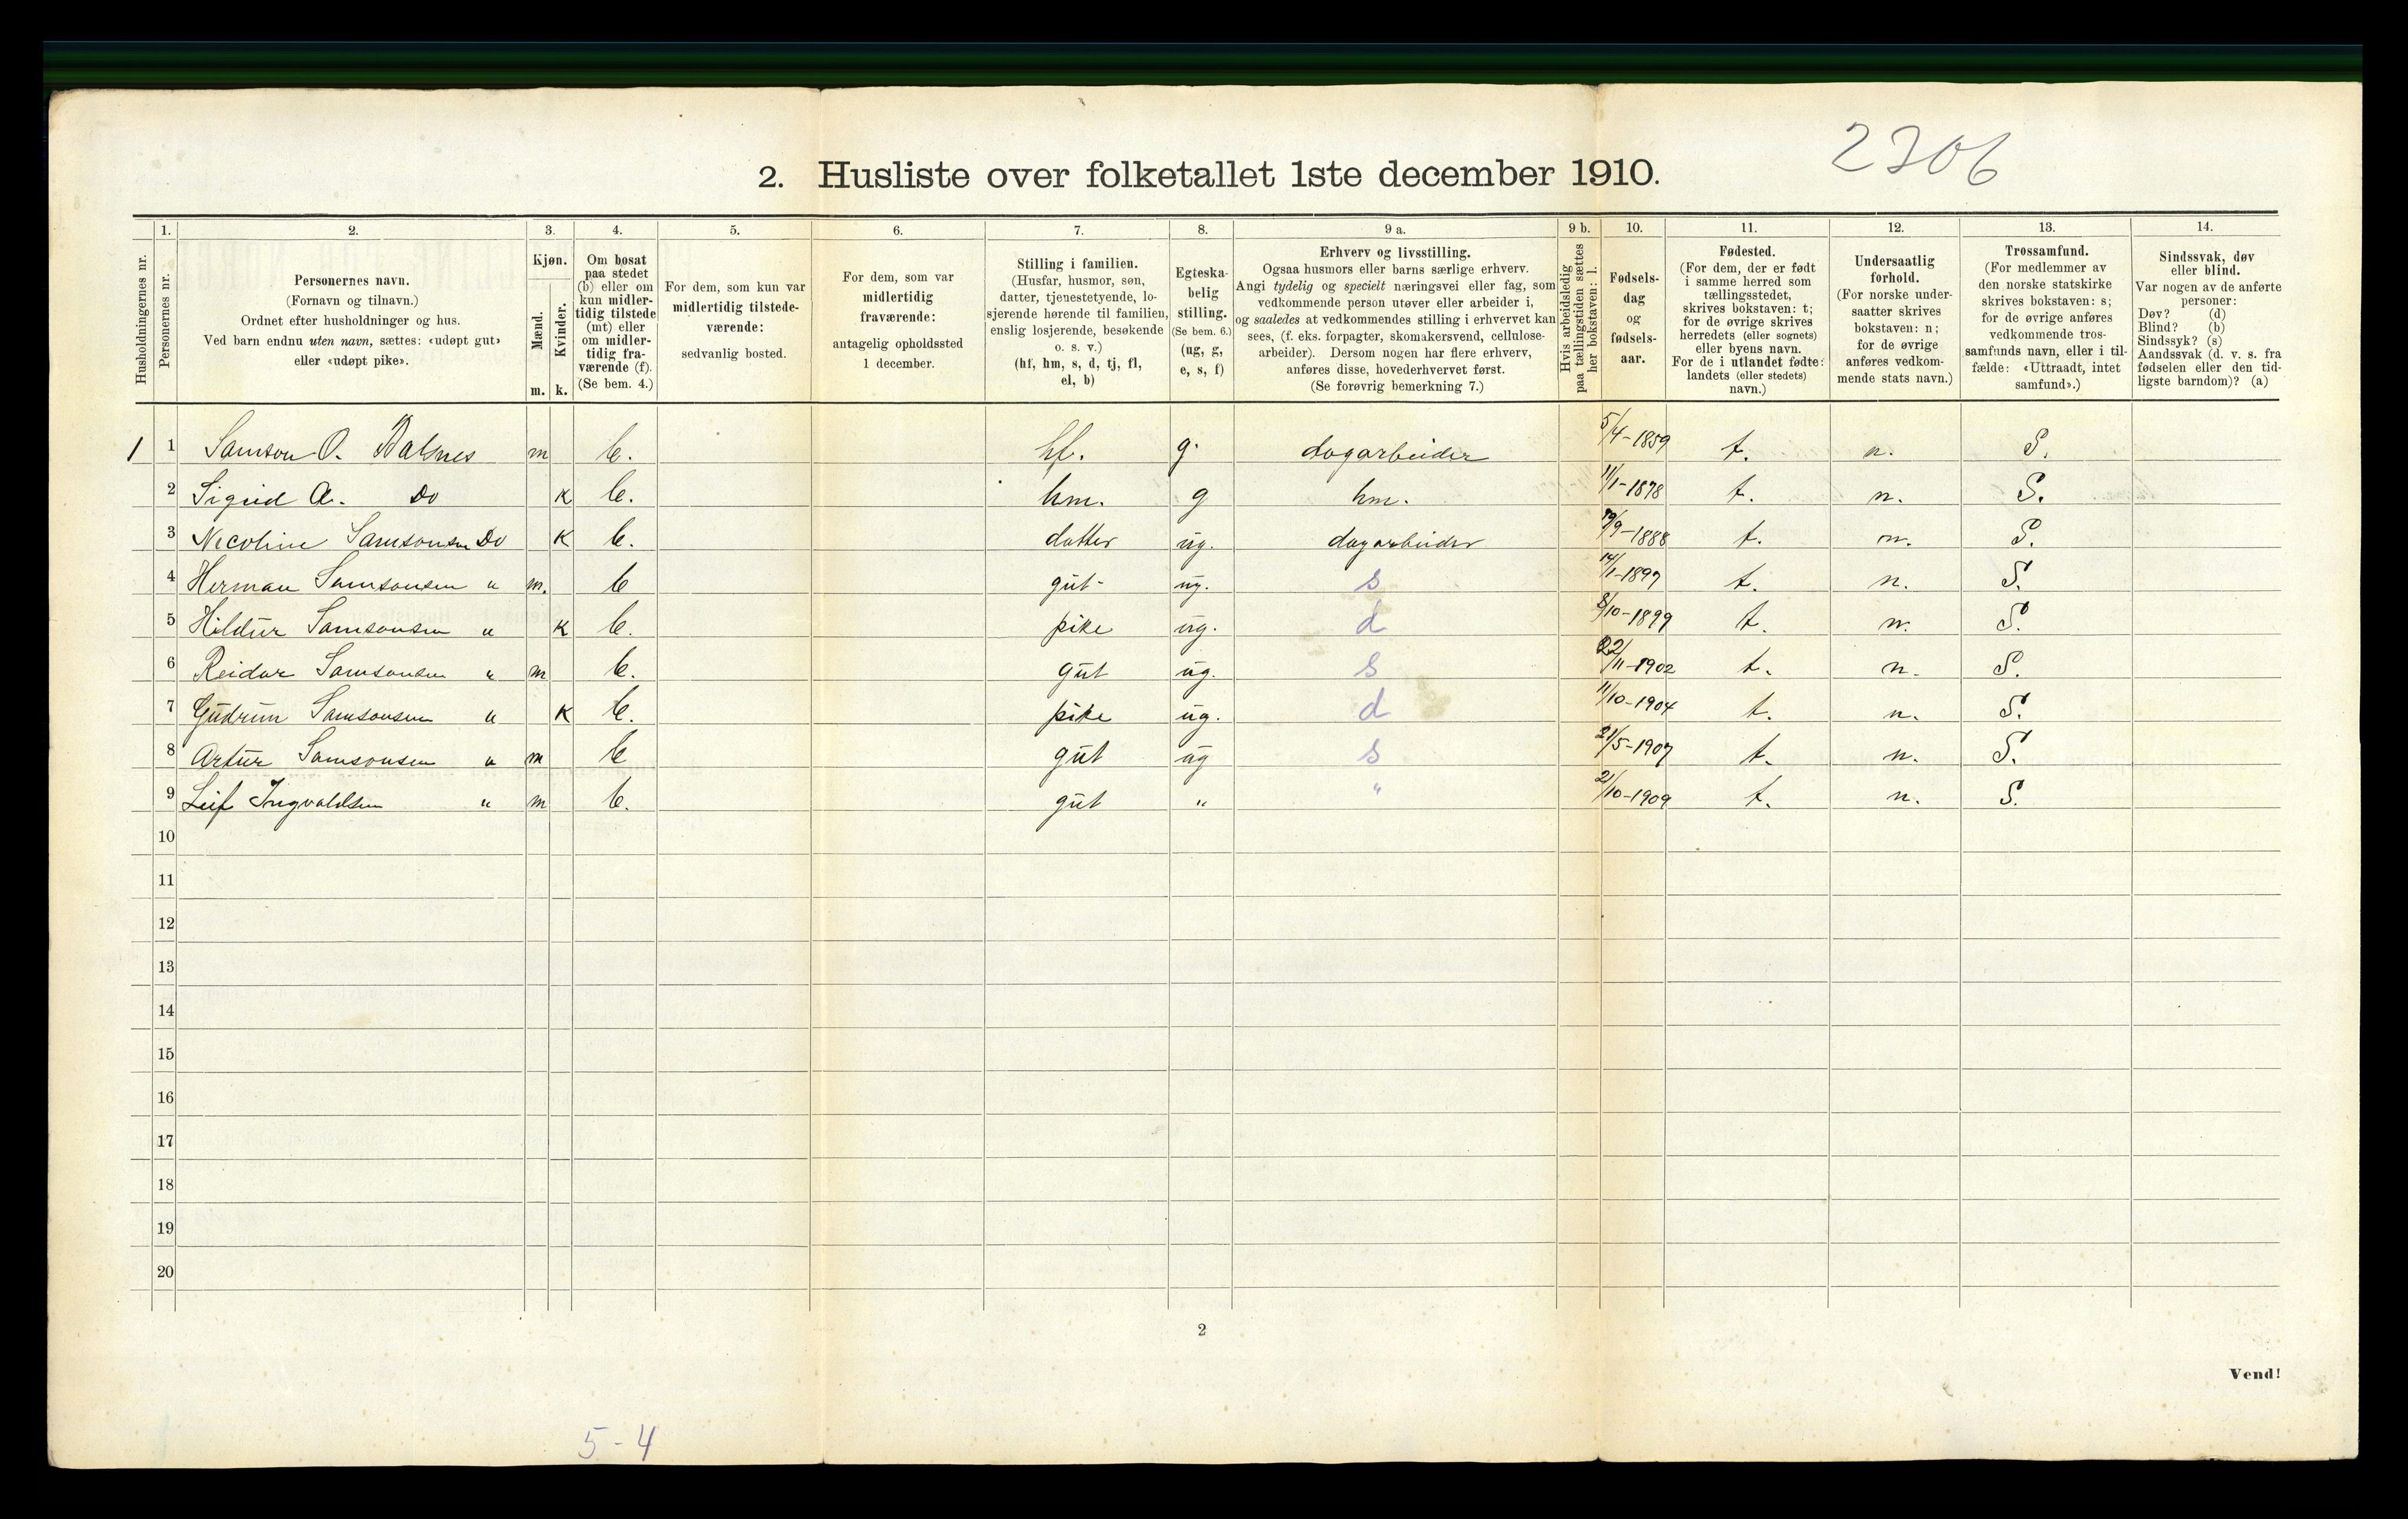 2306
2. Husliste over folketallet 1ste december 1910.
1. 2. 3. 4. 5. 6. 7. 8. 9 a. 9 b. 10. 11. 12. 13. 14.
Husholdningernes nr.
Personernes nr.
Personernes navn.
(Fornavn og tilnavn.)
Ordnet efter husholdninger og hus.
Ved barn endnu uten navn, sættes: «udøpt gut»
eller «udøpt pike».
Kjøn.
Mænd.
Kvinder.
m. k.
Om bosat
paa stedet
(b) eller om
kun midler-
tidig tilstede
(mt) eller
om midler-
tidig fra-
værende (f).
(Se bem. 4.)
For dem, som kun var
midlertidig tilstede-
værende:
sedvanlig bosted.
For dem, som var
midlertidig
fraværende:
antagelig opholdssted
1 december.
Stilling i familien.
(Husfar, husmor, søn,
datter, tjenestetyende, lo-
sjerende hørende til familien,
enslig losjerende, besøkende
o. s. v.)
(hf, hm, s, d, tj, fl,
el, b)
Egteska-
belig
stilling.
(Se bem. 6.)
(ug, g,
e, s, f)
Erhverv og livsstilling.
Ogsaa husmors eller barns særlige erhverv.
Angi tydelig og specielt næringsvei eller fag, som
vedkommende person utøver eller arbeider i,
og saaledes at vedkommendes stilling i erhvervet kan
sees, (f. eks. forpagter, skomakersvend, cellulose-
arbeider). Dersom nogen har flere erhverv,
anføres disse, hovederhvervet først.
(Se forøvrig bemerkning 7.)
Hvis arbeidsledig
paa tællingstiden sættes
her bokstaven: l.
Fødsels-
dag
og
fødsels-
aar.
Fødested.
(For dem, der er født
i samme herred som
tællingsstedet,
skrives bokstaven: t;
for de øvrige skrives
herredets (eller sognets)
eller byens navn.
For de i utlandet fødte:
landets (eller stedets)
navn.)
Undersaatlig
forhold.
(For norske under-
saatter skrives
bokstaven: n;
for de øvrige
anføres vedkom-
mende stats navn.)
Trossamfund.
(For medlemmer av
den norske statskirke
skrives bokstaven: s;
for de øvrige anføres
vedkommende tros-
samfunds navn, eller i til-
fælde: «Uttraadt, intet
samfund».)
Sindssvak, døv
eller blind.
Var nogen av de anførte
personer:
Døv? (d)
Blind? (b)
Sindssyk? (s)
Aandssvak (d. v. s. fra
fødselen eller den tid-
ligste barndom)? (a)
1 1 Samson O. m b. hf. g. dagarbeider 5/4-1859 t. n. S.
2 Sigrid A. Do K b. hm. g hm. 11/1-1878 t. n. S.
3 Nicoline Samsonsen Do K b. datter ug. dagarbeider /9-1888 t. n. S.
4 Herman Samsonsen " m. b gut- ug. s 14/1-1897 t. n. S.
5 Hildur Samsonsen " K b. pike ug. d 8/10-1899 t. n. S.
6 Reidar Samsonsen " m b. gut ug. s 22/11-1902 t. n. S.
7 Gudrun Samsonsen " K b. pike ug. d 11/10-1904 t. n. S.
8 Artur Samsonsen " m b gut ug s 21/5-1907 t. n. S.
9 Leif Ingvaldsen " m b. gut " " 21/10-1909 t. n. S.
10
11
12
13
14
15
16
17
18
19
20
2
Vend!
5-4